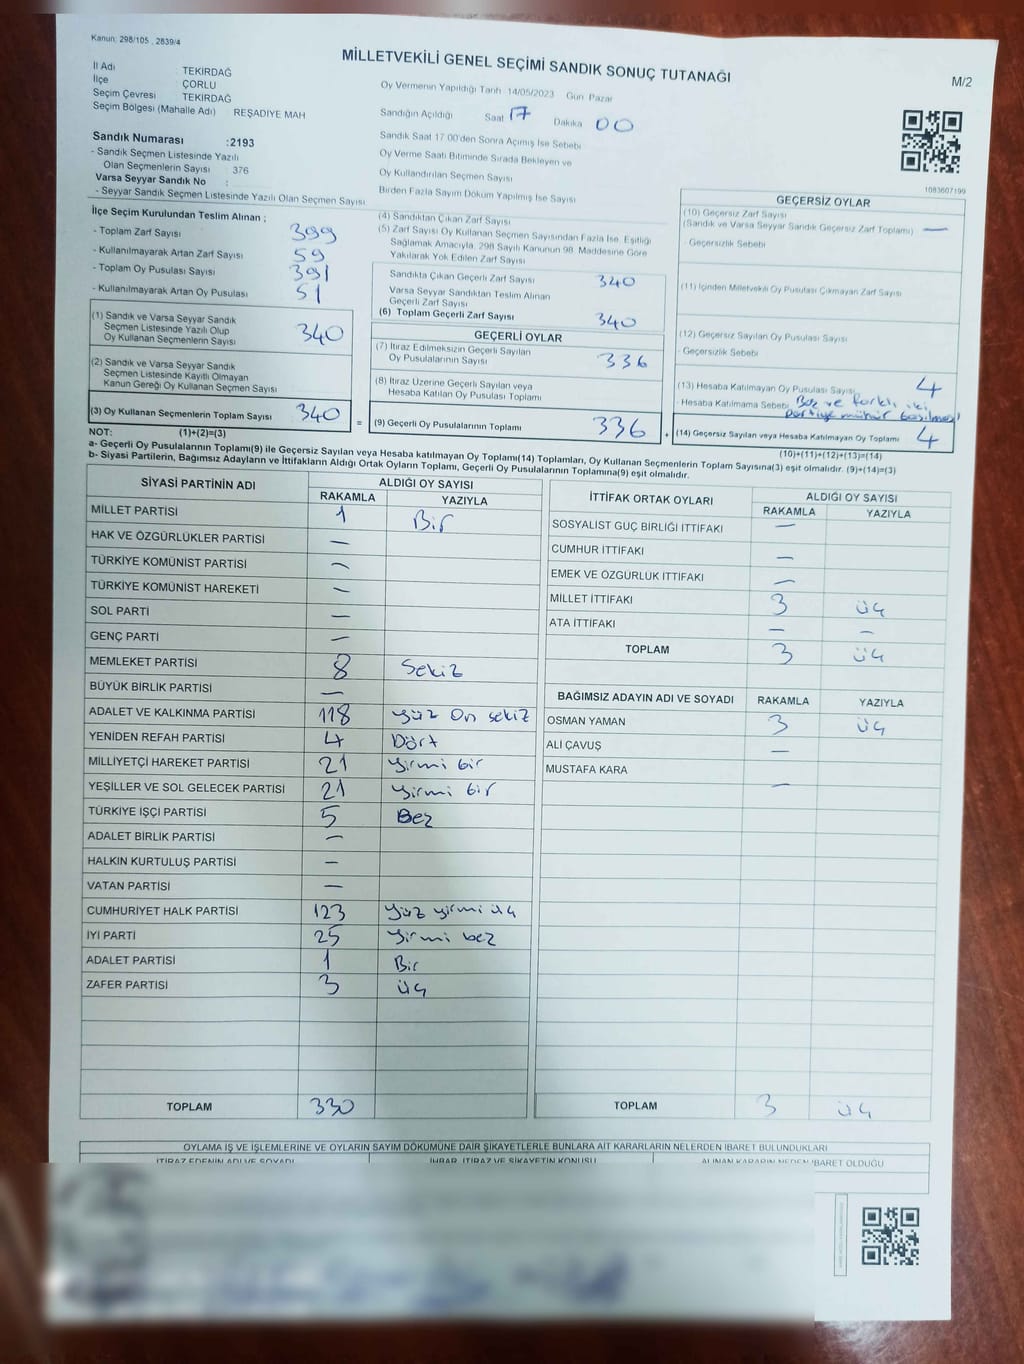 Kanun: 298/105 , 2839/4
MİLLETVEKİLİ GENEL SEÇİMİ SANDIK SONUÇ TUTANAĞI
M/2
İl Adı : TEKİRDAĞ
İlçe : ÇORLU
Seçim Çevresi : TEKİRDAĞ
Seçim Bölgesi (Mahalle Adı) : REŞADİYE MAH
Sandık Numarası :2193
- Sandık Seçmen Listesinde Yazılı
Olan Seçmenlerin Sayısı : 376
Varsa Seyyar Sandık No :
- Seyyar Sandık Seçmen Listesinde Yazılı Olan Seçmen Sayısı
Oy Vermenin Yapıldığı Tarih : 14/05/2023 Gün: Pazar
Sandığın Açıldığı Saat 17 Dakika 00
Sandık Saat 17:00'den Sonra Açılmış İse Sebebi
Oy Verme Saati Bitiminde Sırada Bekleyen ve
Oy Kullandırılan Seçmen Sayısı
Birden Fazla Sayım Döküm Yapılmış İse Sayısı
1083607199
İlçe Seçim Kurulundan Teslim Alınan ;
- Toplam Zarf Sayısı 399
- Kullanılmayarak Artan Zarf Sayısı 59
- Toplam Oy Pusulası Sayısı 391
- Kullanılmayarak Artan Oy Pusulası 51
(1) Sandık ve Varsa Seyyar Sandık
Seçmen Listesinde Yazılı Olup
Oy Kullanan Seçmenlerin Sayısı 340
(2) Sandık ve Varsa Seyyar Sandık
Seçmen Listesinde Kayıtlı Olmayan
Kanun Gereği Oy Kullanan Seçmen Sayısı
(3) Oy Kullanan Seçmenlerin Toplam Sayısı 340 =
(4) Sandıktan Çıkan Zarf Sayısı
(5) Zarf Sayısı Oy Kullanan Seçmen Sayısından Fazla İse, Eşitliği
Sağlamak Amacıyla, 298 Sayılı Kanunun 98. Maddesine Göre
Yakılarak Yok Edilen Zarf Sayısı
Sandıkta Çıkan Geçerli Zarf Sayısı 340
Varsa Seyyar Sandıktan Teslim Alınan
Geçerli Zarf Sayısı
(6) Toplam Geçerli Zarf Sayısı 340
GEÇERLİ OYLAR
(7) İtiraz Edilmeksizin Geçerli Sayılan
Oy Pusulalarının Sayısı 336
(8) İtiraz Üzerine Geçerli Sayılan veya
Hesaba Katılan Oy Pusulası Toplamı
(9) Geçerli Oy Pusulalarının Toplamı 336 +
GEÇERSİZ OYLAR
(10) Geçersiz Zarf Sayısı
(Sandık ve Varsa Seyyar Sandık Geçersiz Zarf Toplamı) —
- Geçersizlik Sebebi
(11) İçinden Milletvekili Oy Pusulası Çıkmayan Zarf Sayısı
(12) Geçersiz Sayılan Oy Pusulası Sayısı
- Geçersizlik Sebebi
(13) Hesaba Katılmayan Oy Pusulası Sayısı 4
- Hesaba Katılmama Sebebi Boş ve farklı iki
partiye mühür basılması
(14) Geçersiz Sayılan veya Hesaba Katılmayan Oy Toplamı 4
NOT: (1)+(2)=(3) (10)+(11)+(12)+(13)=(14)
a- Geçerli Oy Pusulalarının Toplamı(9) ile Geçersiz Sayılan veya Hesaba katılmayan Oy Toplamı(14) Toplamları, Oy Kullanan Seçmenlerin Toplam Sayısına(3) eşit olmalıdır. (9)+(14)=(3)
b- Siyasi Partilerin, Bağımsız Adayların ve İttifakların Aldığı Ortak Oyların Toplamı, Geçerli Oy Pusulalarının Toplamına(9) eşit olmalıdır.
SİYASİ PARTİNİN ADI ALDIĞI OY SAYISI
RAKAMLA YAZIYLA
MİLLET PARTİSİ 1 Bir
HAK VE ÖZGÜRLÜKLER PARTİSİ —
TÜRKİYE KOMÜNİST PARTİSİ —
TÜRKİYE KOMÜNİST HAREKETİ —
SOL PARTİ —
GENÇ PARTİ —
MEMLEKET PARTİSİ 8 Sekiz
BÜYÜK BİRLİK PARTİSİ —
ADALET VE KALKINMA PARTİSİ 118 yüz on sekiz
YENİDEN REFAH PARTİSİ 4 Dört
MİLLİYETÇİ HAREKET PARTİSİ 21 yirmi bir
YEŞİLLER VE SOL GELECEK PARTİSİ 21 yirmi bir
TÜRKİYE İŞÇİ PARTİSİ 5 Beş
ADALET BİRLİK PARTİSİ —
HALKIN KURTULUŞ PARTİSİ —
VATAN PARTİSİ —
CUMHURİYET HALK PARTİSİ 123 yüz yirmi üç
İYİ PARTİ 25 yirmi beş
ADALET PARTİSİ 1 Bir
ZAFER PARTİSİ 3 üç
TOPLAM 330
İTTİFAK ORTAK OYLARI ALDIĞI OY SAYISI
RAKAMLA YAZIYLA
SOSYALİST GÜÇ BİRLİĞİ İTTİFAKI —
CUMHUR İTTİFAKI —
EMEK VE ÖZGÜRLÜK İTTİFAKI —
MİLLET İTTİFAKI 3 üç
ATA İTTİFAKI — —
TOPLAM 3 üç
BAĞIMSIZ ADAYIN ADI VE SOYADI RAKAMLA YAZIYLA
OSMAN YAMAN 3 üç
ALİ ÇAVUŞ —
MUSTAFA KARA —
TOPLAM 3 üç
OYLAMA İŞ VE İŞLEMLERİNE VE OYLARIN SAYIM DÖKÜMÜNE DAİR ŞİKAYETLERLE BUNLARA AİT KARARLARIN NELERDEN İBARET BULUNDUKLARI
İTİRAZ EDENİN ADI VE SOYADI İHBAR, İTİRAZ VE ŞİKAYETİN KONUSU ALINAN KARARIN NEDEN İBARET OLDUĞU